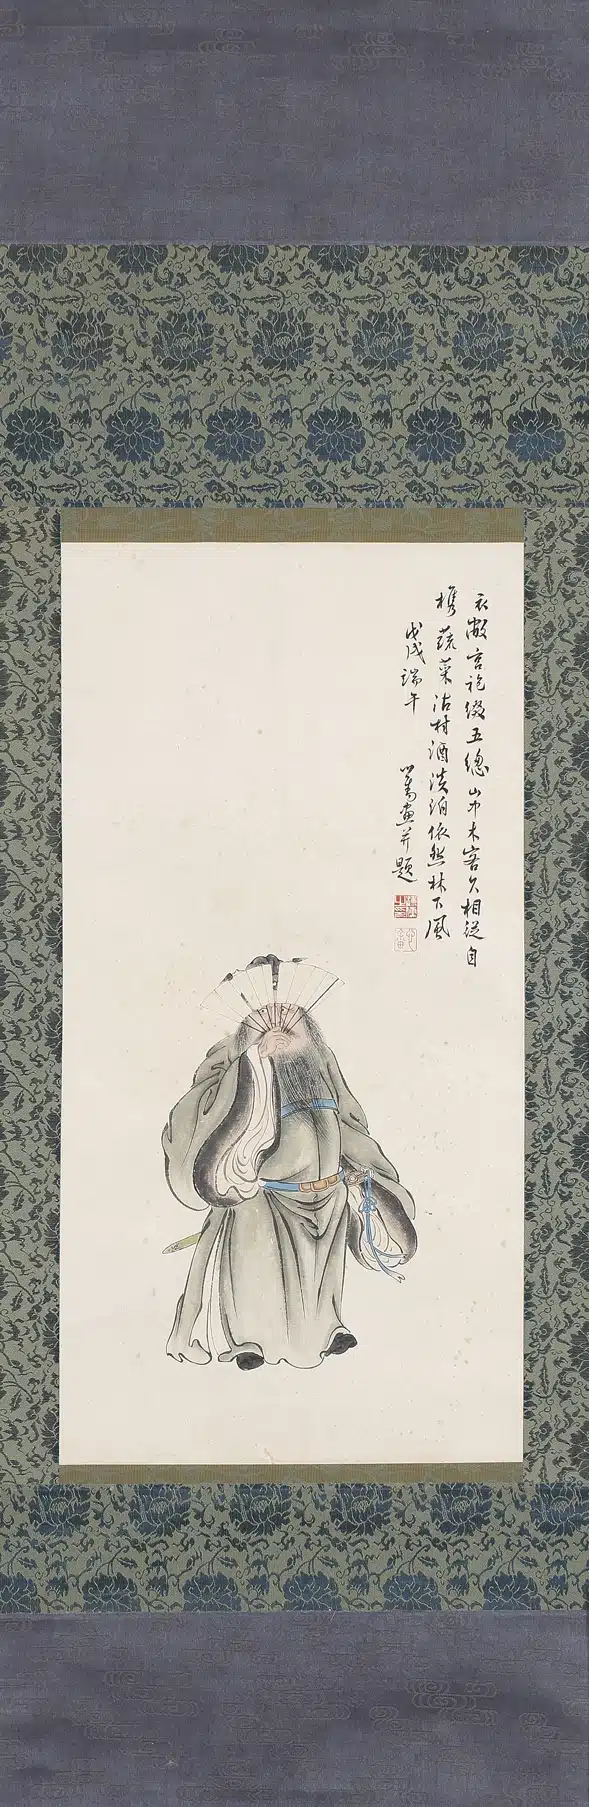 衣敝宮袍綴五總山中木客久相從自
携蔬菜沽村酒淡泊依然林下風
戊戌端午 心畬畫并題